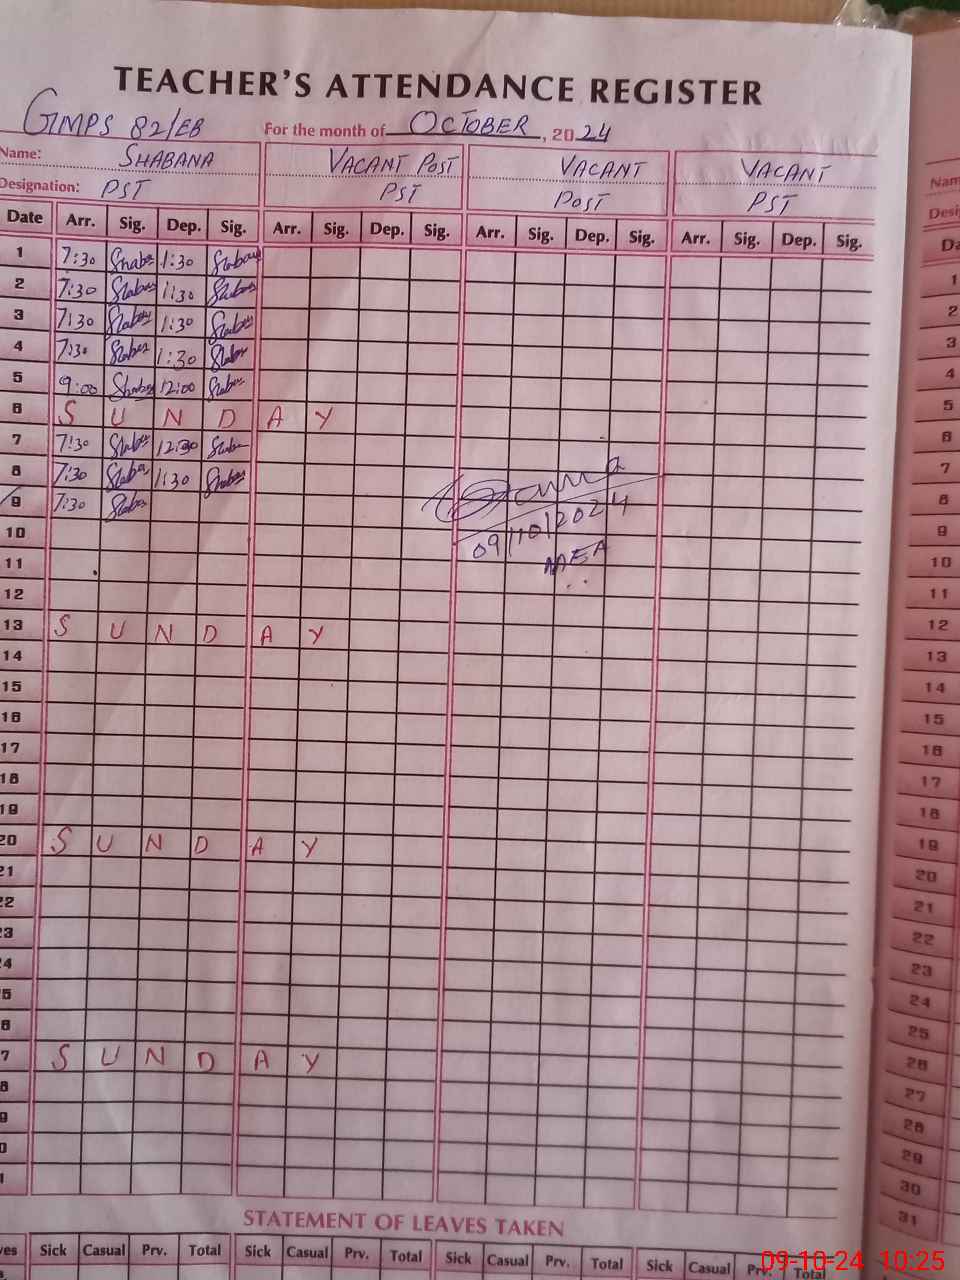 TEACHER'S ATTENDANCE REGISTER
GMPS 82/EB For the month of OCTOBER, 2024
Name: SHABANA VACANT POST VACANT VACANT
Designation: PST PST POST PST
Date Arr. Sig. Dep. Sig. Arr. Sig. Dep. Sig. Arr. Sig. Dep. Sig. Arr. Sig. Dep. Sig.
1 7:30 1:30
2 7:30 1:30
3 7:30 1:30
4 7:30 1:30
5 9:00 12:00
6 S U N D A Y
7 7:30 12:30
8 7:30 1:30
9 7:30
09/10/2024
10
11
12
13 S U N D A Y
14
15
16
17
18
19
20 S U N D A Y
21
22
23
24
25
26
27 S U N D A Y
28
29
30
31
STATEMENT OF LEAVES TAKEN
Sick Casual Prv. Total Sick Casual Prv. Total Sick Casual Prv. Total Sick Casual Prv. Total
09-10-24 10:25
1
2
3
4
5
6
7
8
9
10
11
12
13
14
15
16
17
18
19
20
21
22
23
24
25
26
27
28
29
30
31